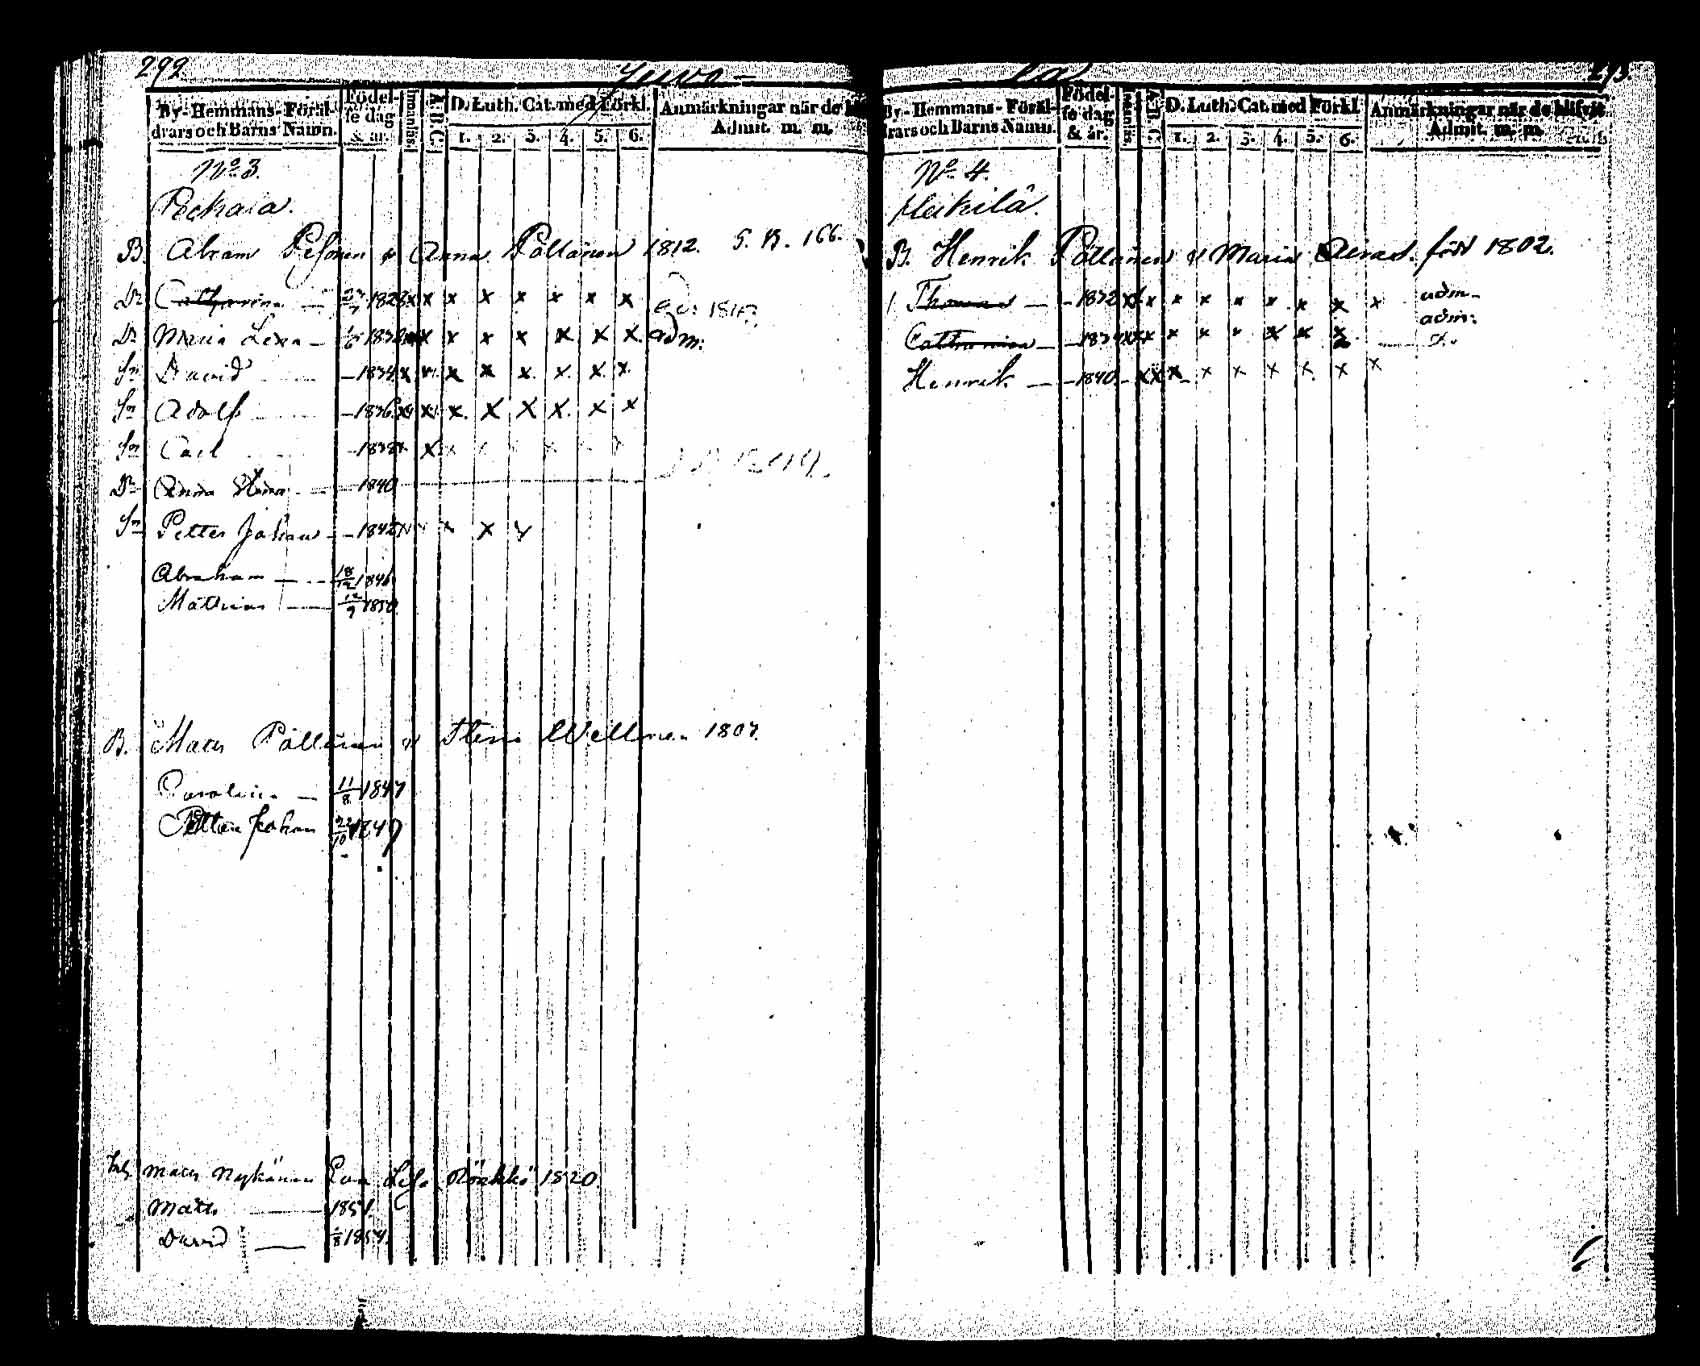 292
By-Hemmans-Föräl-
drars och Barns Namn.
Födel-
se dag
& år.
Innanläs.
A.B.C.
D. Luth. Cat. med Förkl.
1. 2. 3. 4. 5. 6.
Anmärkningar när de
Admit. m. m.
No 3.
B. Abram Pesonen & Anna Pöllänen 1812. S. B. 166.
Dr Catharina — 1828 x x x x x x x x
Dr Maria Lena — x x x x x x x adm:
Sn David — 1834 x x x x x x x x
Sn Adolf — 1836 x x x x x x x x
Sn Carl — 1838 x x
Dr Anna Stina — 1840
Sn Petter Johan — 1842 x x x x x
Abraham — 18/12 1846
Mathias — 12/9 1850
B. Mats Pöllänen & Stina 1807.
Carolina — 11/8 1847
Petter Johan 1849
Mats Nykänen Eva Lisa Rönkkö 1820.
Mats — 1851.
David —
By-Hemmans-Föräl-
drars och Barns Namn.
Födel-
se dag
& år.
Innanläs.
A.B.C.
D. Luth. Cat. med Förkl.
1. 2. 3. 4. 5. 6.
Anmärkningar när de blifvit
Admit. m. m.
No 4.
Heikilä.
B. Henrik Pöllänen & Maria född 1802.
Thomas — 1832 x x x x x x x x x adm.
Catharina — x x x x x x x x adm:
Henrik — 1840 x x x x x x x x x